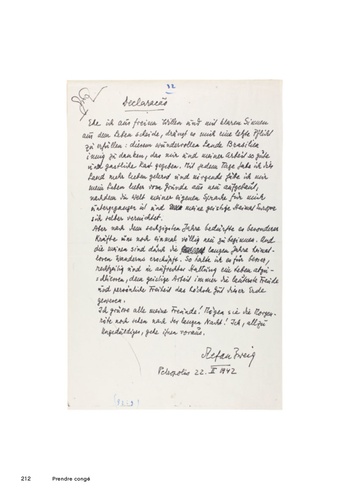 Declaracão
Ehe ich aus freiem Willen und mit klaren Sinnen
aus dem Leben scheide, drängt es mich eine letzte Pflicht
zu erfüllen: diesem wundervollen Lande Brasilien
innig zu danken, das mir und meiner Arbeit so gute
und gastliche Rast gegeben. Mit jedem Tage habe ich dies
Land mehr lieben gelernt und nirgends hätte ich mir
mein Leben lieber vom Grunde aus neu aufgebaut,
nachdem die Welt meiner eigenen Sprache für mich
untergegangen ist und meine geistige Heimat Europa
sich selber vernichtet.
Aber nach dem sechzigsten Jahre bedürfte es besonderer
Kräfte um noch einmal völlig neu zu beginnen. Und
die meinen sind durch die langen Jahre heimat-
losen Wanderns erschöpft. So halte ich es für besser,
rechtzeitig und in aufrechter Haltung ein Leben abzu-
schliessen, dem geistige Arbeit immer die lauterste Freude
und persönliche Freiheit das höchste Gut dieser Erde
gewesen.
Ich grüsse alle meine Freunde! Mögen sie die Morgen-
röte noch sehen nach der langen Nacht! Ich, allzu
Ungeduldiger, gehe ihnen voraus.
Stefan Zweig
Petropolis 22. II 1942
212 Prendre congé